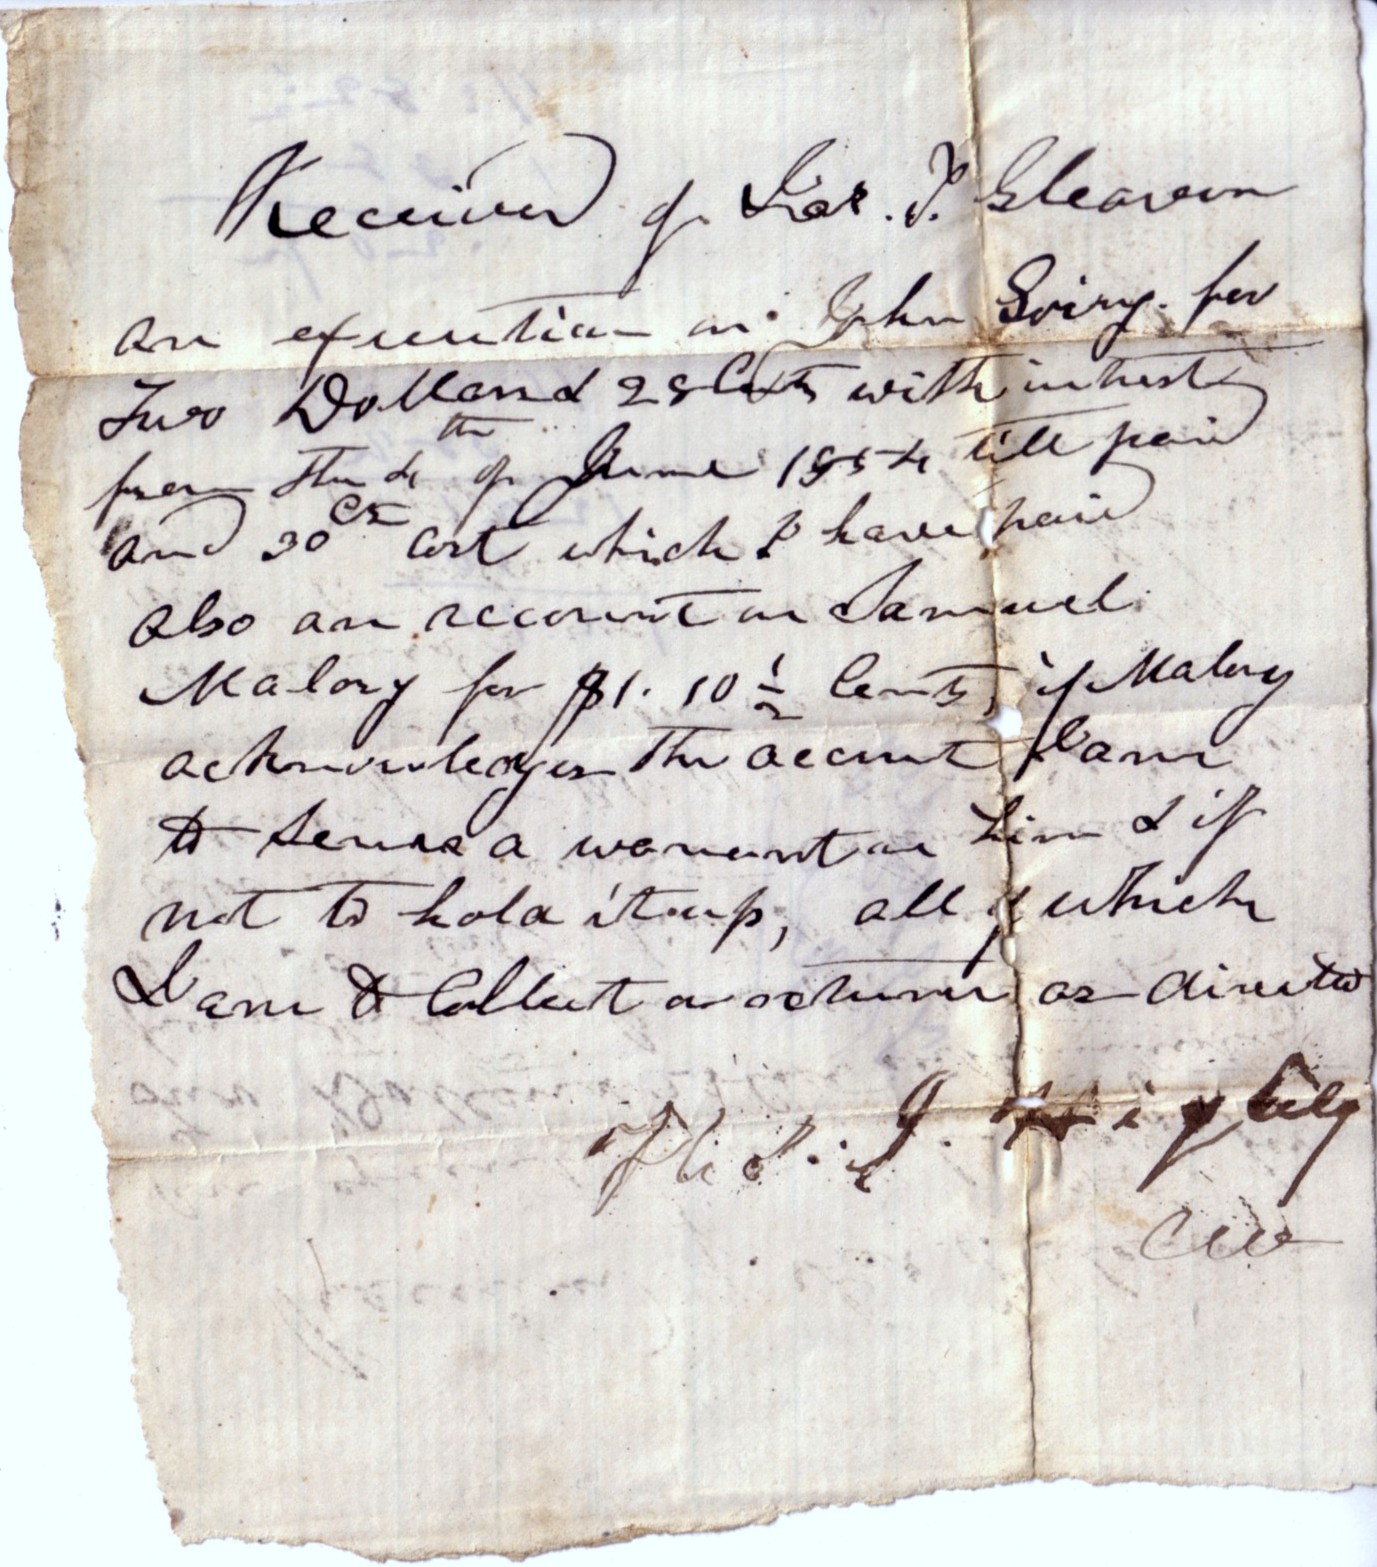 Received of Jas. T. Gleaven
an execution on John Goiry. for
Two Dollars & 28 Cents with interest
from the 4th of June 1854 till paid
and 30 cts cost which I have paid
also an account on Samuel
Malory for $1. 10 1/2 Cents, if Malory
acknowledges the account I am
to serve a warrant on him & if
not to hold it up, all of which
I am to Collect or return as directed
J. Higby